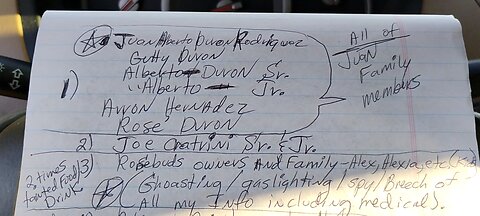 A Juan Alberto Duron Rodriquez
Gutty Duron
Alberto Duron Sr.
1) "Alberto Jr.
Arron Hernadez
Rose Duron
All of
Juan
Family
members
2) Joe Chatrini Sr. & Jr.
3) Rosebuds owners And Family - Alex, Alexia, etc
2 times
tainted Food/
Drink
(Ghoasting/gaslighting/spy/Breach of
All my Info including medical).